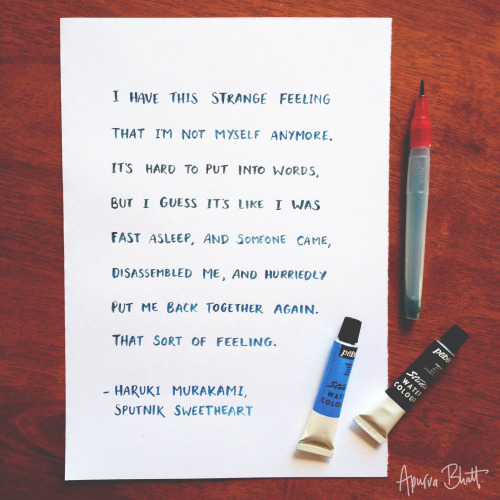 I HAVE THIS STRANGE FEELING
THAT I'M NOT MYSELF ANYMORE.
IT'S HARD TO PUT INTO WORDS,
BUT I GUESS IT'S LIKE I WAS
FAST ASLEEP, AND SOMEONE CAME,
DISASSEMBLED ME, AND HURRIEDLY
PUT ME BACK TOGETHER AGAIN.
THAT SORT OF FEELING.
- HARUKI MURAKAMI,
SPUTNIK SWEETHEART
Apurva Bhatt